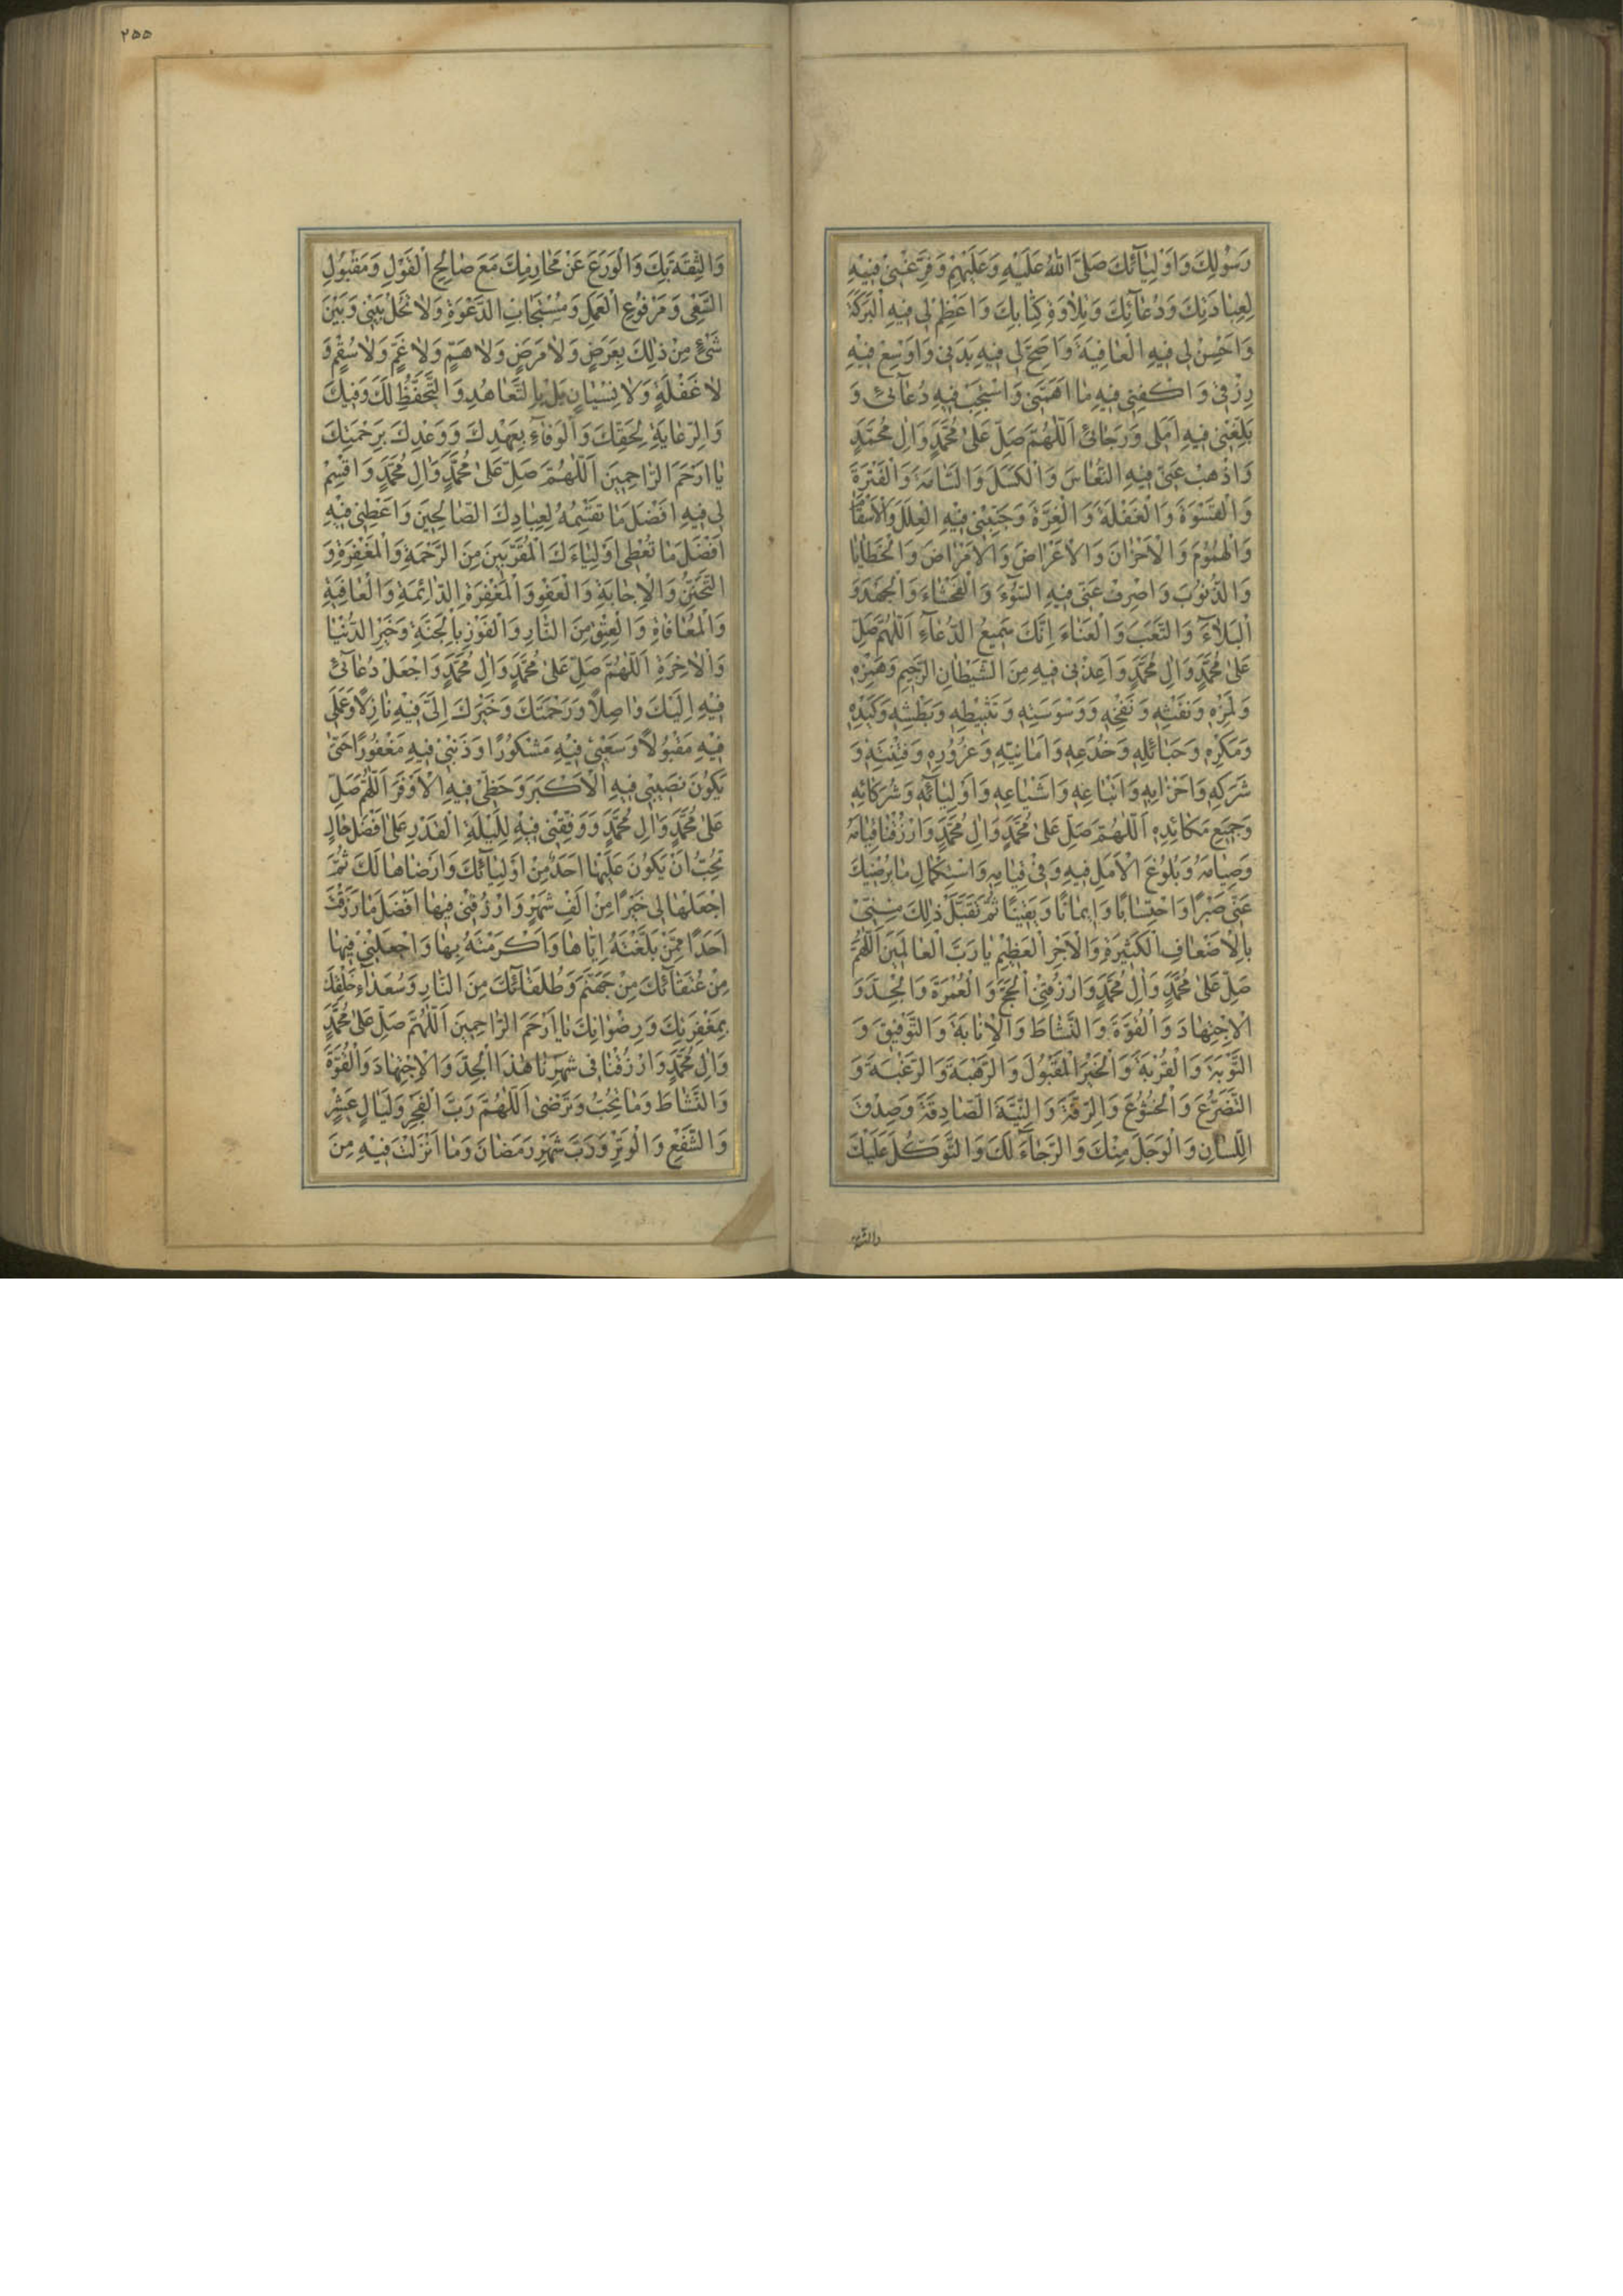 رَسُولِكَ وَاَوْلِيٰآئِكَ صَلَّى اللّٰهُ عَلَيْهِ وَعَلَيْهِمْ وَفَرِّغْنِيْ فِيْهِ
لِعِبٰادَتِكَ وَدُعٰآئِكَ وَتِلٰاوَةِ كِتٰابِكَ وَاَعْظِمْ لِي فِيهِ الْبَرَكَةَ
وَاَحْسِنْ لِي فِيهِ الْعٰافِيَةَ وَاَصِحَّ لِي فِيهِ بَدَنِي وَاَوْسِعْ فِيهِ
رِزْقِي وَاكْفِنِي فِيهِ مٰا اَهَمَّنِي وَاسْتَجِبْ فِيهِ دُعٰآئِي وَ
بَلِّغْنِي فِيهِ اَمَلِي وَرَجٰائِي اَللّٰهُمَّ صَلِّ عَلىٰ مُحَمَّدٍ وَاٰلِ مُحَمَّدٍ
وَاَذْهِبْ عَنِّي فِيهِ النُّعٰاسَ وَالْكَسَلَ وَالسَّاٰمَةَ وَالْفَتْرَةَ
وَالْقَسْوَةَ وَالْغَفْلَةَ وَالْغِرَّةَ وَجَنِّبْنِي فِيْهِ الْعِلَلَ وَالْاَسْقٰا
وَالْهُمُوْمَ وَالْاَحْزٰانَ وَالْاَعْرٰاضَ وَالْاَمْرٰاضَ وَالْخَطٰايٰا
وَالذُّنُوْبَ وَاصْرِفْ عَنِّي فِيهِ السُّوْٓءَ وَالْفَحْشٰاءَ وَالْجَهْدَ وَ
الْبَلٰاۤءَ وَالتَّعَبَ وَالْعَنٰاءَ اِنَّكَ سَمِيعُ الدُّعٰآءِ اَللّٰهُمَّ صَلِّ
عَلىٰ مُحَمَّدٍ وَاٰلِ مُحَمَّدٍ وَاَعِذْنِي فِيهِ مِنَ الشَّيْطٰانِ الرَّجِيمِ وَهَمْزِهِ
وَلَمْزِهِ وَنَفْثِهِ وَنَفْخِهِ وَوَسْوَسَتِهِ وَتَثْبِيطِهِ وَبَطْشِهِ وَكَيْدِهِ
وَمَكْرِهِ وَحَبٰائِلِهِ وَخُدَعِهِ وَاَمٰانِيِّهِ وَغُرُوْرِهِ وَفِتْنَتِهِ وَ
شَرَكِهِ وَاَحْزٰابِهِ وَاَتْبٰاعِهِ وَاَشْيٰاعِهِ وَاَوْلِيٰآئِهِ وَشُرَكٰائِهِ
وَجَمِيعِ مَكٰائِدِهِ اَللّٰهُمَّ صَلِّ عَلىٰ مُحَمَّدٍ وَاٰلِ مُحَمَّدٍ وَارْزُقْنٰا قِيٰامَهُ
وَصِيٰامَهُ وَبُلُوْغَ الْاَمَلِ فِيهِ وَفِي قِيٰامِهِ وَاسْتِكْمٰالِ مٰا يُرْضِيكَ
عَنِّي صَبْرًا وَاحْتِسٰابًا وَاِيمٰانًا وَيَقِينًا ثُمَّ تَقَبَّلْ ذٰلِكَ مِنِّي
بِالْاَضْعٰافِ الْكَثِيرَةِ وَالْاَجْرِ الْعَظِيْمِ يٰا رَبَّ الْعٰالَمِينَ اَللّٰهُمَّ
صَلِّ عَلىٰ مُحَمَّدٍ وَاٰلِ مُحَمَّدٍ وَارْزُقْنِي الْحَجَّ وَالْعُمْرَةَ وَالْجِدَّ وَ
الْاِجْتِهٰادَ وَالْقُوَّةَ وَالنَّشٰاطَ وَالْاِنٰابَةَ وَالتَّوْفِيقَ وَ
التَّوْبَةَ وَالْقُرْبَةَ وَالْخَيْرَ الْمَقْبُولَ وَالرَّهْبَةَ وَالرَّغْبَةَ وَ
التَّضَرُّعَ وَالْخُشُوْعَ وَالرِّقَّةَ وَالنِّيَّةَ الصّٰادِقَةَ وَصِدْقَ
اللِّسٰانِ وَالْوَجَلَ مِنْكَ وَالرَّجٰآءَ لَكَ وَالتَّوَكُّلَ عَلَيْكَ
والثقة
٢٥٥
وَالثِّقَةَ بِكَ وَالْوَرَعَ عَنْ مَحٰارِمِكَ مَعَ صٰالِحِ الْقَوْلِ وَمَقْبُولِ
السَّعْيِ وَمَرْفُوْعِ الْعَمَلِ وَمُسْتَجٰابِ الدَّعْوَةِ وَلٰا تَحُلْ بَيْنِي وَبَيْنَ
شَيْءٍ مِنْ ذٰلِكَ بِعَرَضٍ وَلٰا مَرَضٍ وَلٰا هَمٍّ وَلٰا غَمٍّ وَلٰا سُقْمٍ وَ
لٰا غَفْلَةٍ وَلٰا نِسْيٰانٍ بَلْ بِالتَّعٰاهُدِ وَالتَّحَفُّظِ لَكَ وَفِيكَ
وَالرِّعٰايَةِ لِحَقِّكَ وَالْوَفٰآءِ بِعَهْدِكَ وَوَعْدِكَ بِرَحْمَتِكَ
يٰا اَرْحَمَ الرّٰاحِمِينَ اَللّٰهُمَّ صَلِّ عَلىٰ مُحَمَّدٍ وَاٰلِ مُحَمَّدٍ وَاقْسِمْ
لِي فِيهِ اَفْضَلَ مٰا تَقْسِمُهُ لِعِبٰادِكَ الصّٰالِحِينَ وَاَعْطِنِي فِيْهِ
اَفْضَلَ مٰا تُعْطِي اَوْلِيٰاءَكَ الْمُقَرَّبِينَ مِنَ الرَّحْمَةِ وَالْمَغْفِرَةِ وَ
التَّحَنُّنِ وَالْاِجٰابَةِ وَالْعَفْوِ وَالْمَغْفِرَةِ الدّٰائِمَةِ وَالْعٰافِيَةِ
وَالْمُعٰافٰاةِ وَالْعِتْقِ مِنَ النّٰارِ وَالْفَوْزِ بِالْجَنَّةِ وَخَيْرِ الدُّنْيٰا
وَالْاٰخِرَةِ اَللّٰهُمَّ صَلِّ عَلىٰ مُحَمَّدٍ وَاٰلِ مُحَمَّدٍ وَاجْعَلْ دُعٰآئِي
فِيْهِ اِلَيْكَ وٰاصِلًا وَرَحْمَتَكَ وَخَيْرَكَ اِلَيَّ فِيْهِ نٰازِلًا وَعَمَلِي
فِيْهِ مَقْبُولًا وَسَعْيِي فِيْهِ مَشْكُوْرًا وَذَنْبِي فِيهِ مَغْفُورًا حَتّىٰ
يَكُوْنَ نَصِيبِي فِيهِ الْاَكْبَرَ وَحَظِّي فِيهِ الْاَوْفَرَ اَللّٰهُمَّ صَلِّ
عَلىٰ مُحَمَّدٍ وَاٰلِ مُحَمَّدٍ وَوَفِّقْنِي فِيْهِ لِلَيْلَةِ الْقَدْرِ عَلىٰ اَفْضَلِ حٰالٍ
تُحِبُّ اَنْ يَكُونَ عَلَيْهٰا اَحَدٌ مِنْ اَوْلِيٰآئِكَ وَاَرْضٰاهٰا لَكَ ثُمَّ
اجْعَلْهٰا لِي خَيْرًا مِنْ اَلْفِ شَهْرٍ وَارْزُقْنِي فِيهٰا اَفْضَلَ مٰا رَزَقْتَ
اَحَدًا مِمَّنْ بَلَّغْتَهُ اِيّٰاهٰا وَاَكْرَمْتَهُ بِهٰا وَاجْعَلْنِيْ فِيهٰا
مِنْ عُتَقٰآئِكَ مِنْ جَهَنَّمَ وَطُلَقٰآئِكَ مِنَ النّٰارِ وَسُعَدٰآءِ خَلْقِكَ
بِمَغْفِرَتِكَ وَرِضْوٰانِكَ يٰا اَرْحَمَ الرّٰاحِمِينَ اَللّٰهُمَّ صَلِّ عَلىٰ مُحَمَّدٍ
وَاٰلِ مُحَمَّدٍ وَارْزُقْنٰا فِي شَهْرِنٰا هٰذَا الْجِدَّ وَالْاِجْتِهٰادَ وَالْقُوَّةَ
وَالنَّشٰاطَ وَمٰا تُحِبُّ وَتَرْضىٰ اَللّٰهُمَّ رَبَّ الْفَجْرِ وَلَيٰالٍ عَشْرٍ
وَالشَّفْعِ وَالْوَتْرِ وَرَبَّ شَهْرِ رَمَضٰانَ وَمٰا اَنْزَلْتَ فِيْهِ مِنَ